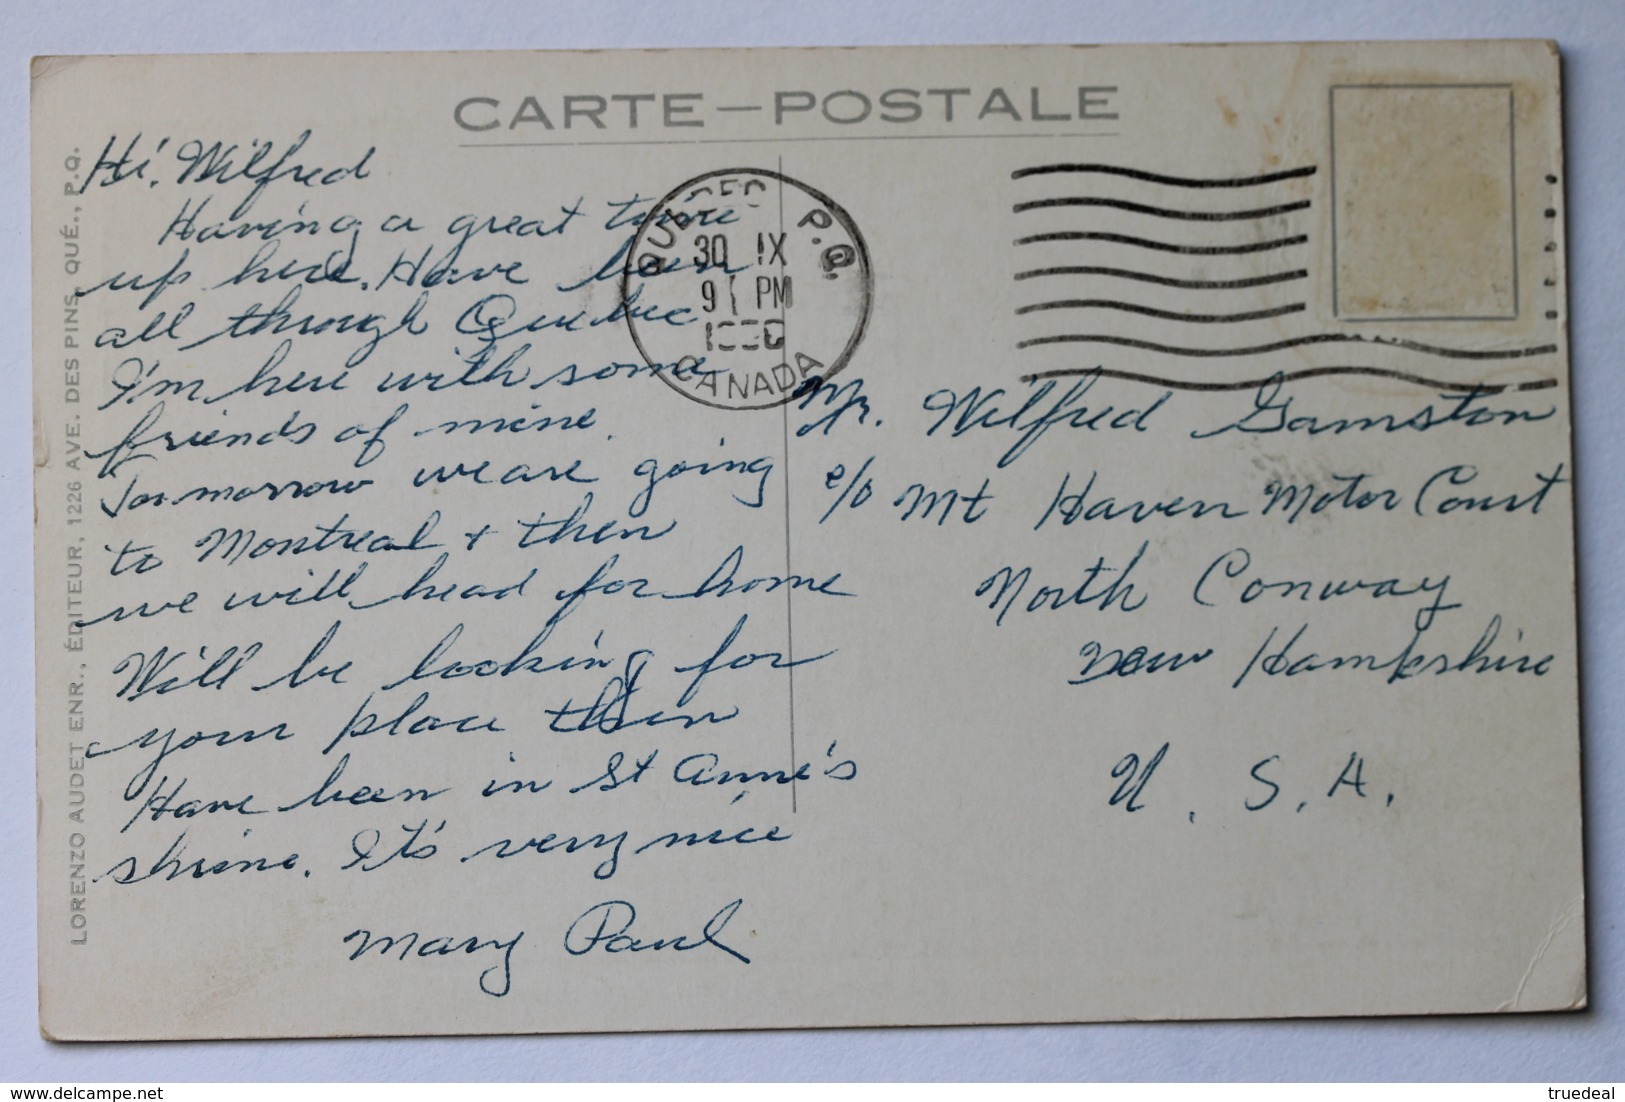 CARTE-POSTALE
Hi, Wilfred
Having a great time
up here. Have been
all through Quebec
I'm here with some
friends of mine.
Tommorrow we are going
to Montreal + then
we will head for home
Will be looking for
your place then
Have been in St Anne's
shrine. It's very nice
Mary Paul
QUEBEC P.Q.
30 IX
9 PM
CANADA
Mr. Wilfred Gamston
c/o Mt Haven Motor Court
North Conway
New Hampshire
U. S. A.
LORENZO AUDET ENR., ÉDITEUR, 1226 AVE. DES PINS, QUÉ., P.Q.
delcampe.net
truedeal